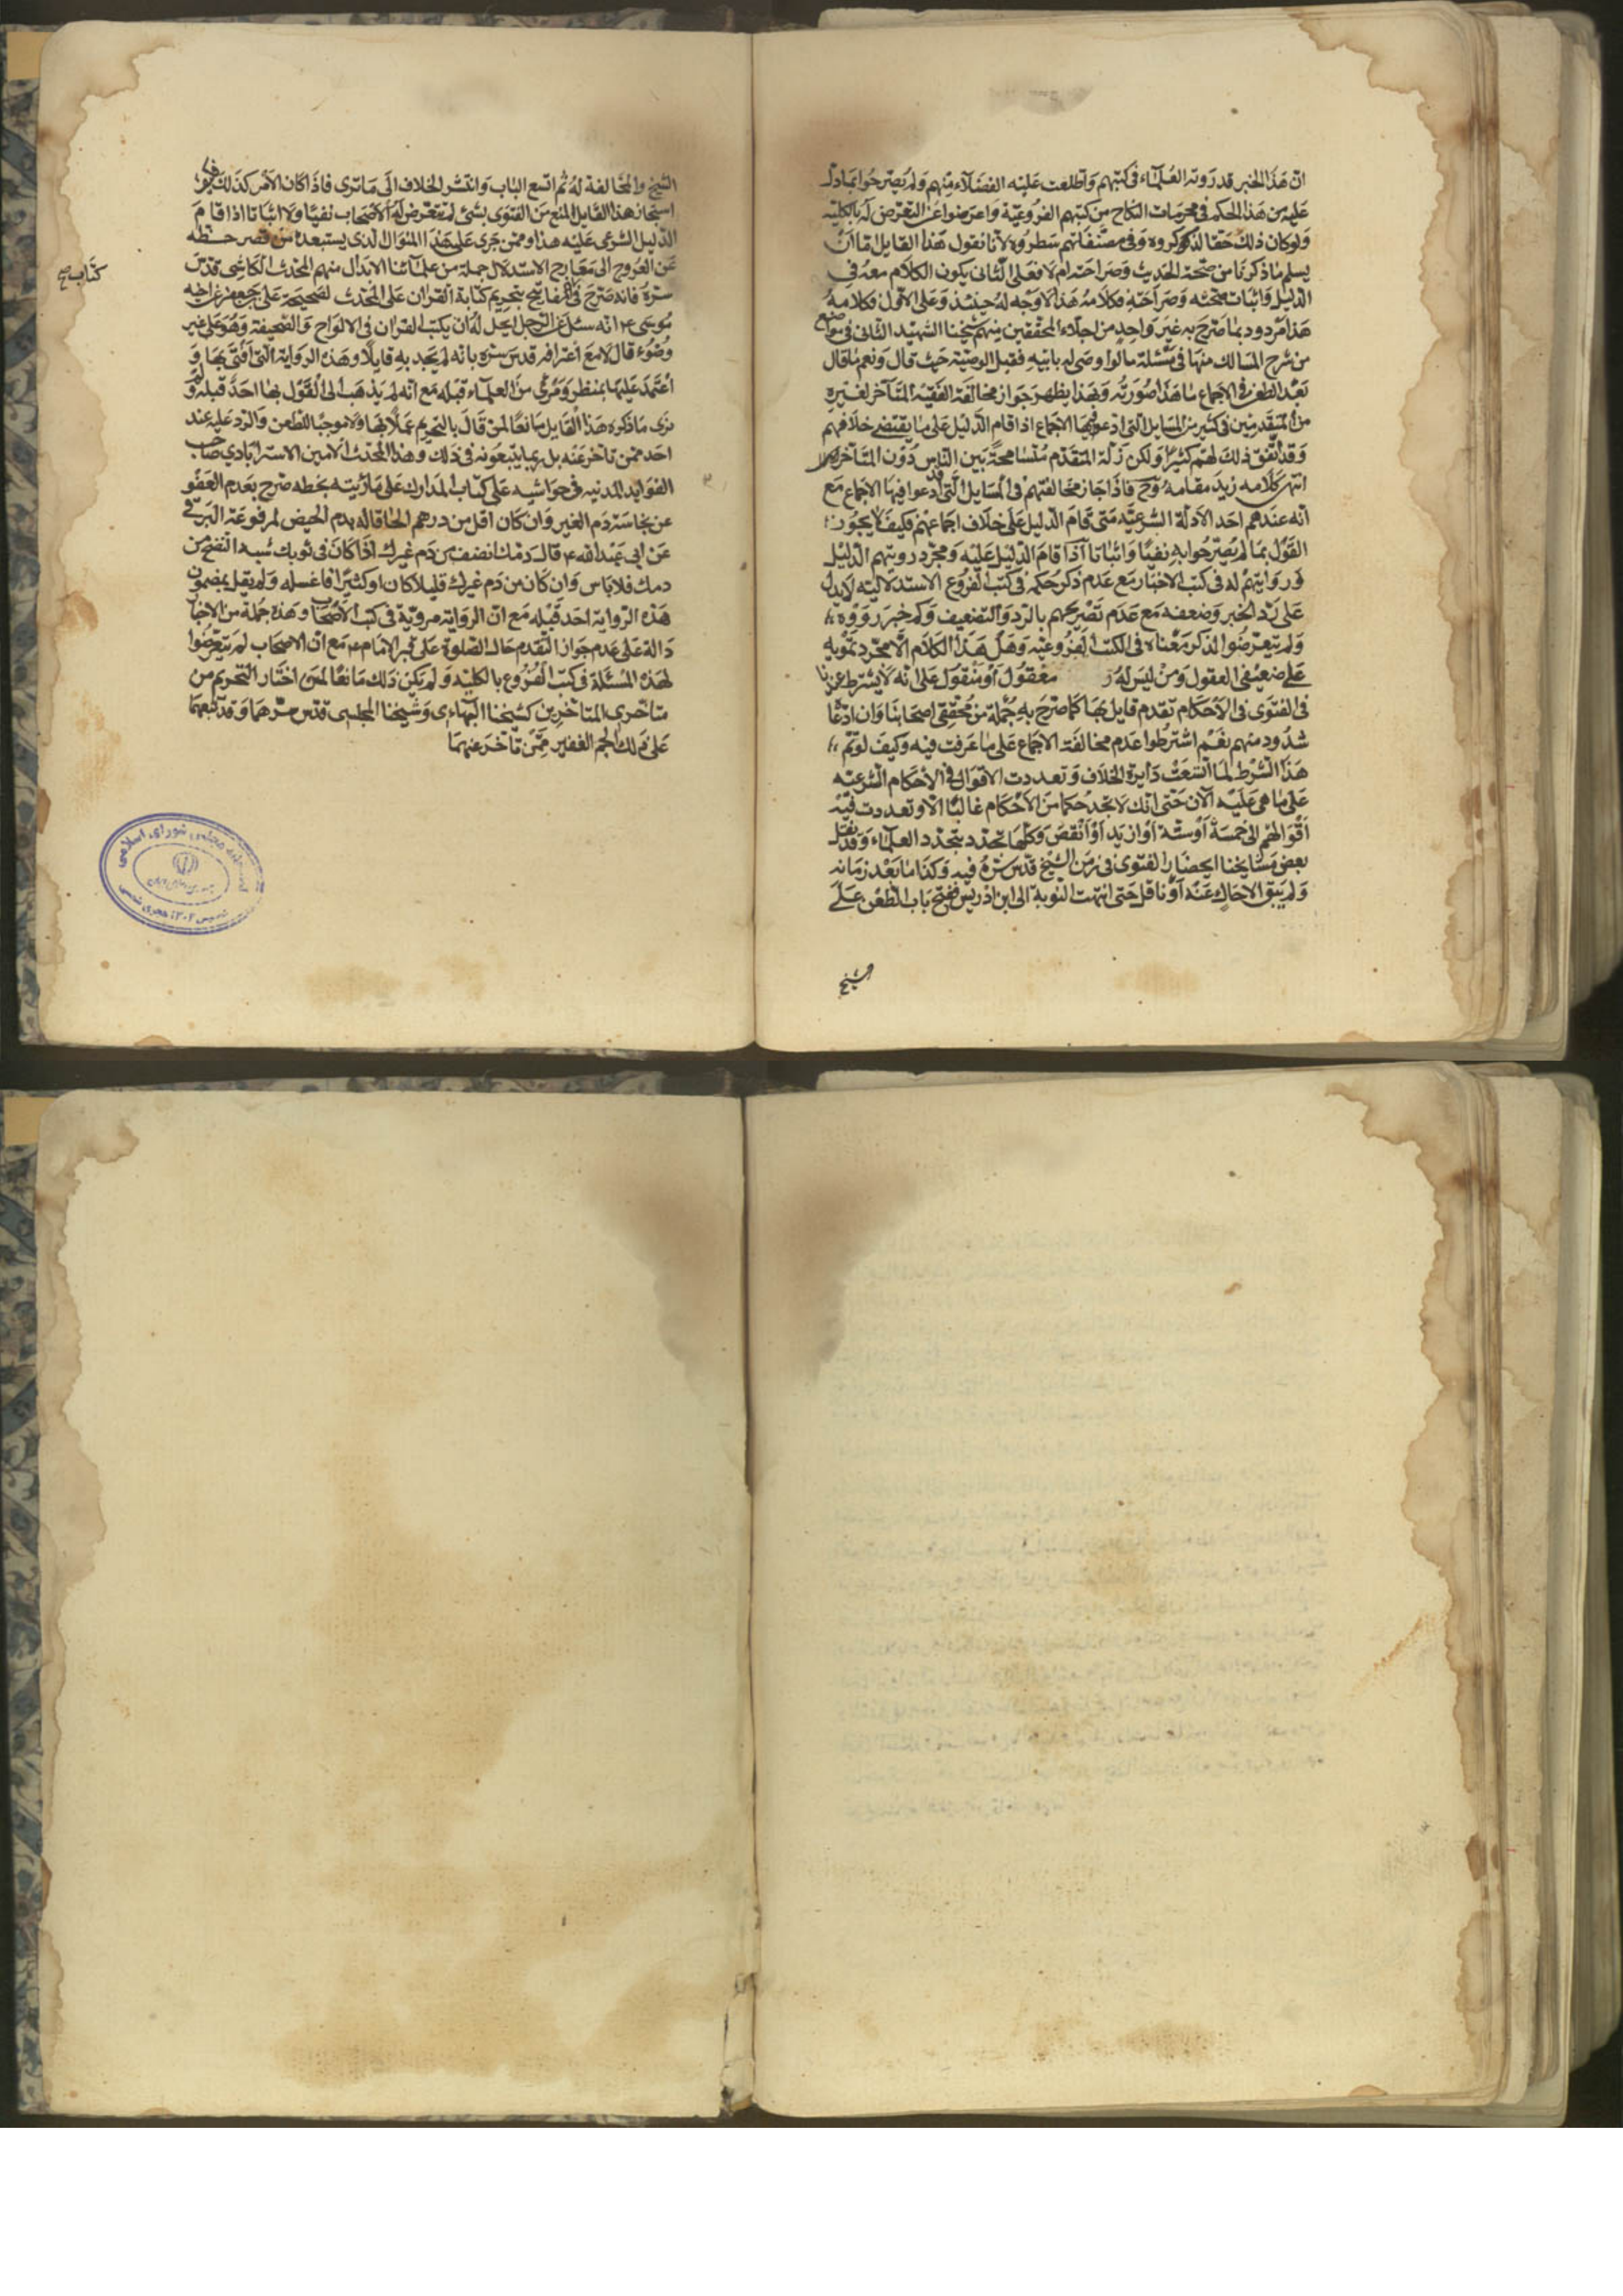 ان هذا الخبر قد روته العلماء في كتبهم وتطلعت عليه الفضلاء منهم ولم يصرحوا بما دل
عليه من هذا الحكم في محرمات النكاح من كتبهم الفروعية واعرضوا عن التعرض له بالكلية
ولو كان ذلك حقا لذكروه وفي مصنفاتهم سطروه لانا نقول هذا القايل اما ان
يسلم ما ذكرنا من صحة الحديث وصراحته ام لا فعلى الثاني يكون الكلام معه في
الدليل واثبات صحته وصراحته فكلامه هذا لا وجه له حينئذ وعلى الاول فكلامه
هذا مردود بما صرح به غير واحد من اجلاء المحققين منهم شيخنا الشهيد الثاني في مواضع
من شرح المسالك منها في مسئلة ما لو اوصى له بابيه فقبل الوصية حيث قال ونعم ما قال
بعد الطعن في الاجماع ما هذا صورته وبهذا يظهر جواز مخالفة الفقيه المتأخر لغيره
من المتقدمين في كثير من المسايل التي ادعوا فيها الاجماع اذا قام الدليل على ما يقتضي خلافهم
وقد اتفق ذلك لهم كثيرا ولكن زلة المتقدم متسامحة بين الناس دون المتأخر
انتهى كلامه زيد مقامه وح فاذا جاز مخالفتهم في المسايل التي قد ادعوا فيها الاجماع مع
انه عندهم احد الادلة الشرعية متى قام الدليل على خلاف اجماعهم فكيف لا يجوز
القول بما لم يصرحوا به نفيا واثباتا اذا قام الدليل عليه ومجرد رويتهم الدليل
وروايتهم له في كتب الاخبار مع عدم ذكر حكمه في كتب الفروع الاستدلالية لا يدل
على رد الخبر وضعفه مع عدم تصريحهم بالرد والتضعيف وكم خبر رووه
ولم يتعرضوا لذكر معناه في الكتب الفروعية وهل هذا الكلام الا مجرد تمويه
على ضعيفي العقول ومن ليس له معقول او منقول على انه لا يشترط عندنا
في الفتوى في الاحكام تقدم قايل بها كما صرح به جملة من محققي اصحابنا وان ادعا
شذوذ منهم نعم اشترطوا عدم مخالفة الاجماع على ما عرفت فيه وكيف لو تم
هذا الشرط لما اتسعت دايرة الخلاف وتعددت الاقوال في الاحكام الشرعية
على ما هي عليه الآن حتى انك لا تجد حكما من الاحكام غالبا الا وتعددت فيه
اقوالهم الى خمسة او ستة او ازيد او انقص وكلها تجدد بتجدد العلماء وقد نقل
بعض مشايخنا انحصار الفتوى في زمن الشيخ قدس سره فيه وكذا ما بعد زمانه
ولم يبق الا حاك عنه او ناقل حتى انتهت النوبة الى ابن ادريس ففتح باب الطعن على
الشيخ
الشيخ والمخالفة له ثم اتسع الباب وانتشر الخلاف الى ما ترى فاذا كان الامر كذلك فكيف
استجاز هذا القايل المنع من الفتوى بشئ لم يتعرض له الاصحاب نفيا ولا اثباتا اذا قام
الدليل الشرعي عليه هذا وممن جرى على هذا المنوال الذي يستبعده من قصر حظه
عن العروج الى معارج الاستدلال جملة من علمائنا الابدال منهم المحدث الكاشي قدس
سره فانه صرح في المفاتيح بتحريم كتابة القرآن على المحدث لصحيحة علي بن جعفر عن اخيه
موسى ع انه سئل عن الرجل ايحل له ان يكتب القران في الالواح والصحيفة وهو على غير
وضوء قال لا مع اعترافه قدس سره بانه لم يجد به قايلا وهذه الرواية التي افتى بها و
اعتمد عليها بمنظر ومرئى من العلماء قبله مع انه لم يذهب الى القول بها احد قبله ولم
نرى ما ذكره هذا القايل مانعا لمن قال بالتحريم عملا بها ولا موجبا للطعن والرد عليه عند
احد ممن تأخر عنه بل ربما يتبعونه في ذلك وهذا المحدث الامين الاسترابادي صاحب
الفوايد المدنيه في حواشيه على كتاب المدارك على ما رأيته بخطه صرح بعدم العفو
عن نجاسة دم الغير وان كان اقل من درهم الحاقا له بدم الحيض لمرفوعة البرقي
عن ابي عبد الله ع قال دمك انضف من دم غيرك اذا كان في ثوبك شبه النضح من
دمك فلا باس وان كان من دم غيرك قليلا كان او كثيرا فاغسله ولم يقل بمضمون
هذه الرواية احد قبله مع ان الرواية مروية في كتب الاصحاب وهذه جملة من الاخبار
دالة على عدم جواز التقدم حال الصلوة على قبر الامام ع مع ان الاصحاب لم يتعرضوا
لهذه المسئلة في كتب الفروع بالكلية ولم يكن ذلك مانعا لمن اختار التحريم من
متأخري المتأخرين كشيخنا البهاءي وشيخنا المجلسي قدس سرهما وقد تبعهما
على ذلك الجم الغفير ممن تأخر عنهما
كتاب صح
كتابخانه مجلس شورای اسلامی
تاسیس ۱۳۰۲ هجری شمسی